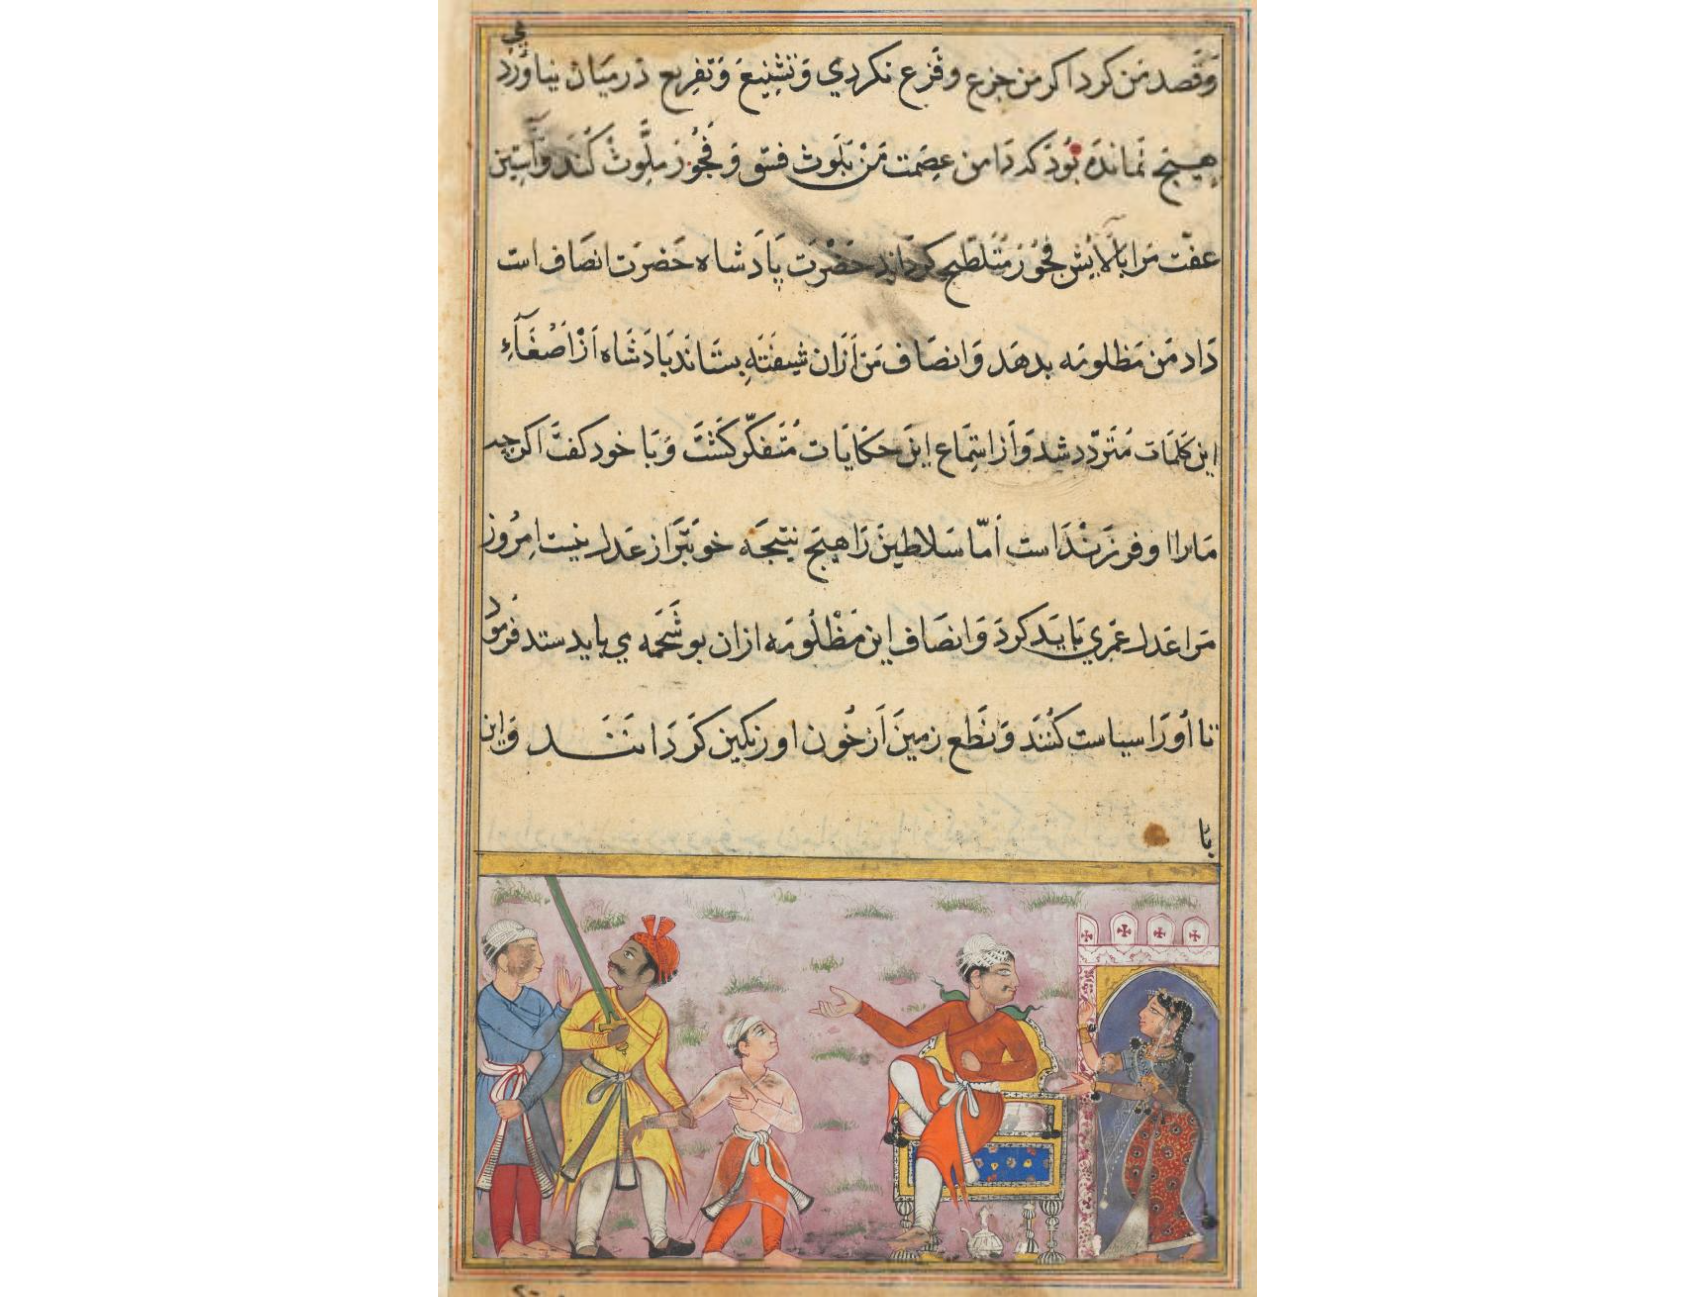 وقصد من کرد اکر من جزع وفزع نکردي وتشنیع وتفریع درمیان نیاورد
ي
هیچ نمانده بود که دامن عصمت من بلوث فسق وفجور ملوث کند وآستین
عفت مرا بآلایش فجور متلطخ کرداند حضرت پادشاه حضرت انصاف است
داد من مظلومه بدهد وانصاف من ازان شیفته بستاند پادشاه از اصغآء
این کلمات متردد شد واز استماع این حکایات متفکر کشت وبا خود کفت اکرچه
مارا او فرزند است اما سلاطین را هیچ نتیجه خوبتر از عدل نیست امروز
مرا عدل عمري باید کرد وانصاف این مظلومه ازان بو شحمه يي باید ستد فرمود
تا اورا سیاست کنند ونطع زمین از خون او رنکین کردانند واین
با